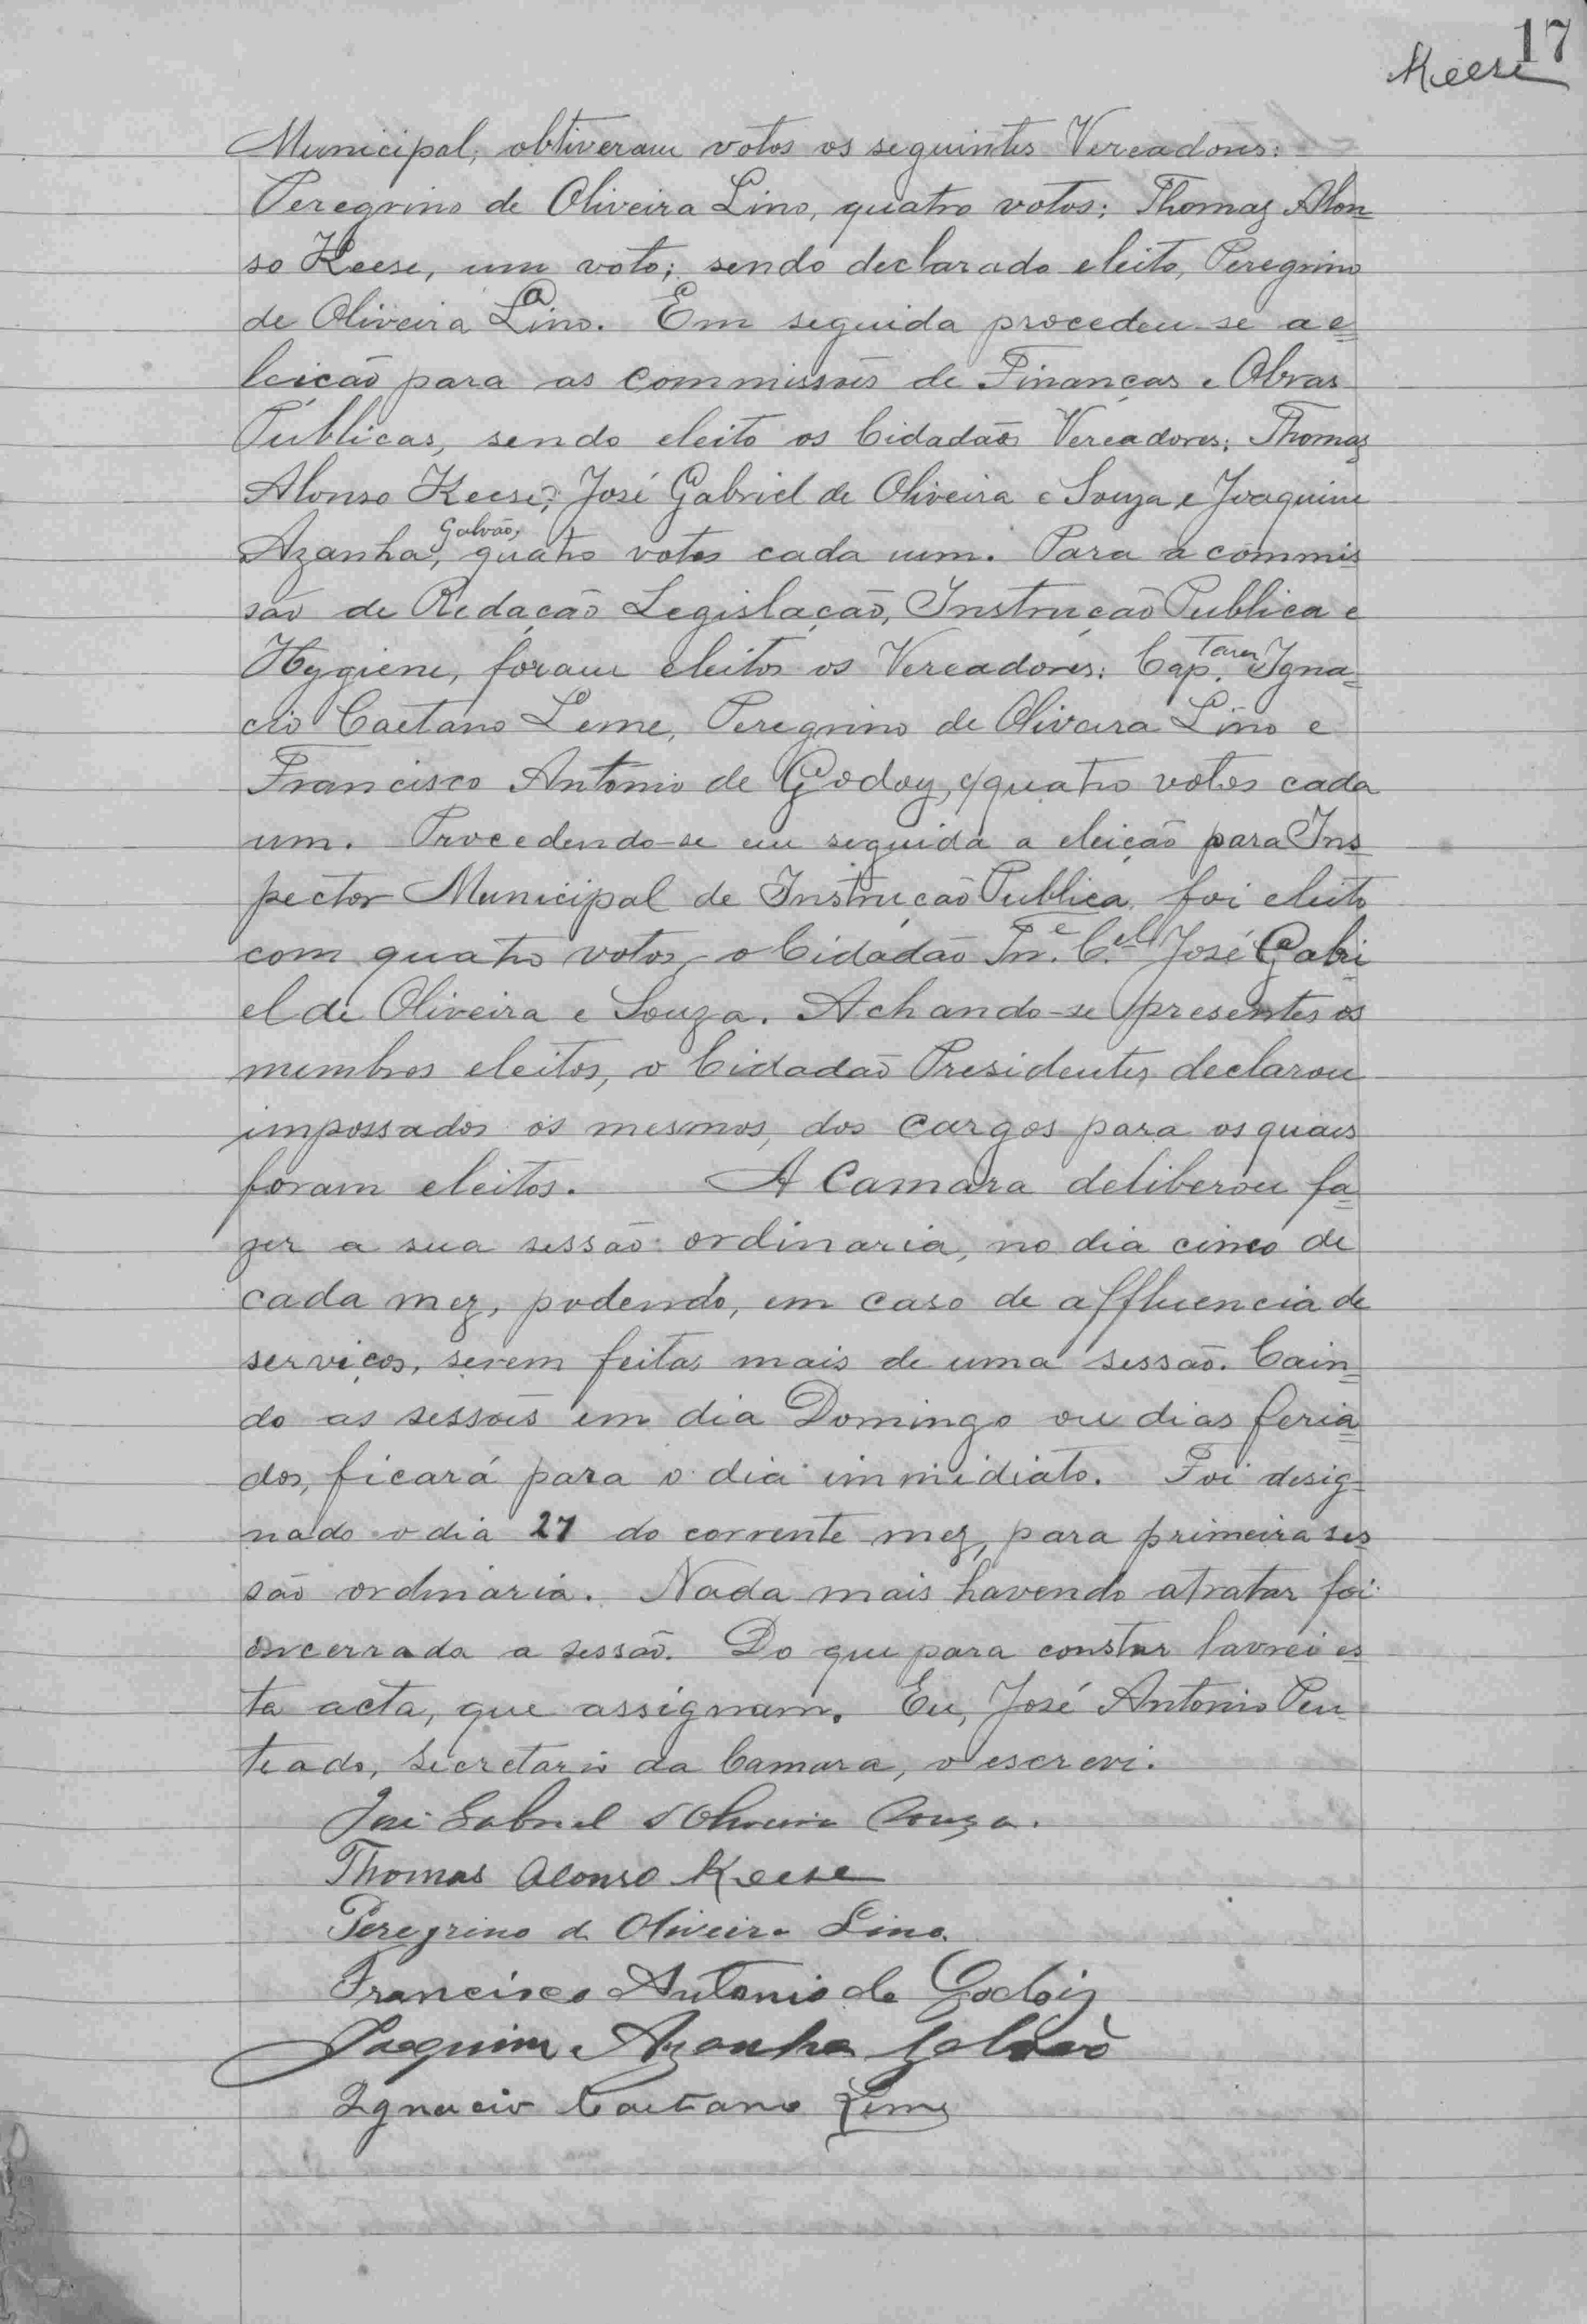 17
Keese
Municipal, obtiveram votos os seguintes Vereadores:
Peregrino de Oliveira Lino, quatro votos; Thomaz Alon
so Keese, um voto; sendo declarado eleito, Peregrino
de Oliveira Lino. Em seguida procedeu-se a e=
leicão para as commissões de Finanças e Obras
Públicas, sendo eleito os Cidadãos Vereadores: Thomaz
Alonso Keese, José Gabriel de Oliveira e Souza e Joaquim
Azanha Galvão, quatro votos cada um. Para a commis
são de Redação Legislação, Instrucção Publica e
Hygiene, foram eleitos os Vereadores: Cap. Igna=
cio Caetano Leme, Peregrino de Oliveira Lino e
Francisco Antonio de Godoy, c/quatro votos cada
um. Procedendo-se em seguida a eleição para Ins
pector Municipal de Instrução Publica, foi eleito
com quatro votos, o Cidadão Tn.e C.el José Gabri
el de Oliveira e Souza. Achando-se presentes os
membros eleitos, o Cidadão Presidente, declarou
impossados os mesmos, dos cargos para os quais
foram eleitos. A Camara deliberou fa=
zer a sua sessão ordinaria, no dia cinco de
cada mez, podendo, em caso de affluencia de
serviços, serem feitas mais de uma sessão. Cain=
do as sessões em dia Domingo ou dias feria=
dos, ficará para o dia immidiato. Foi desig=
nado o dia 27 do corrente mez, para primeira ses
são ordinaria. Nada mais havendo a tratar foi
encerrada a sessão. Do que para constar lavrei es
ta acta, que assignam. Eu, José Antonio Pen
teado, Secretario da Camara, o escrevi.
José Gabriel d'Oliveira Souza.
Thomas Alonso Keese
Peregrino d Oliveira Lino.
Francisco Antonio de Godoy
Joaquim Azanha Galvão
Ignacio Caetano Leme